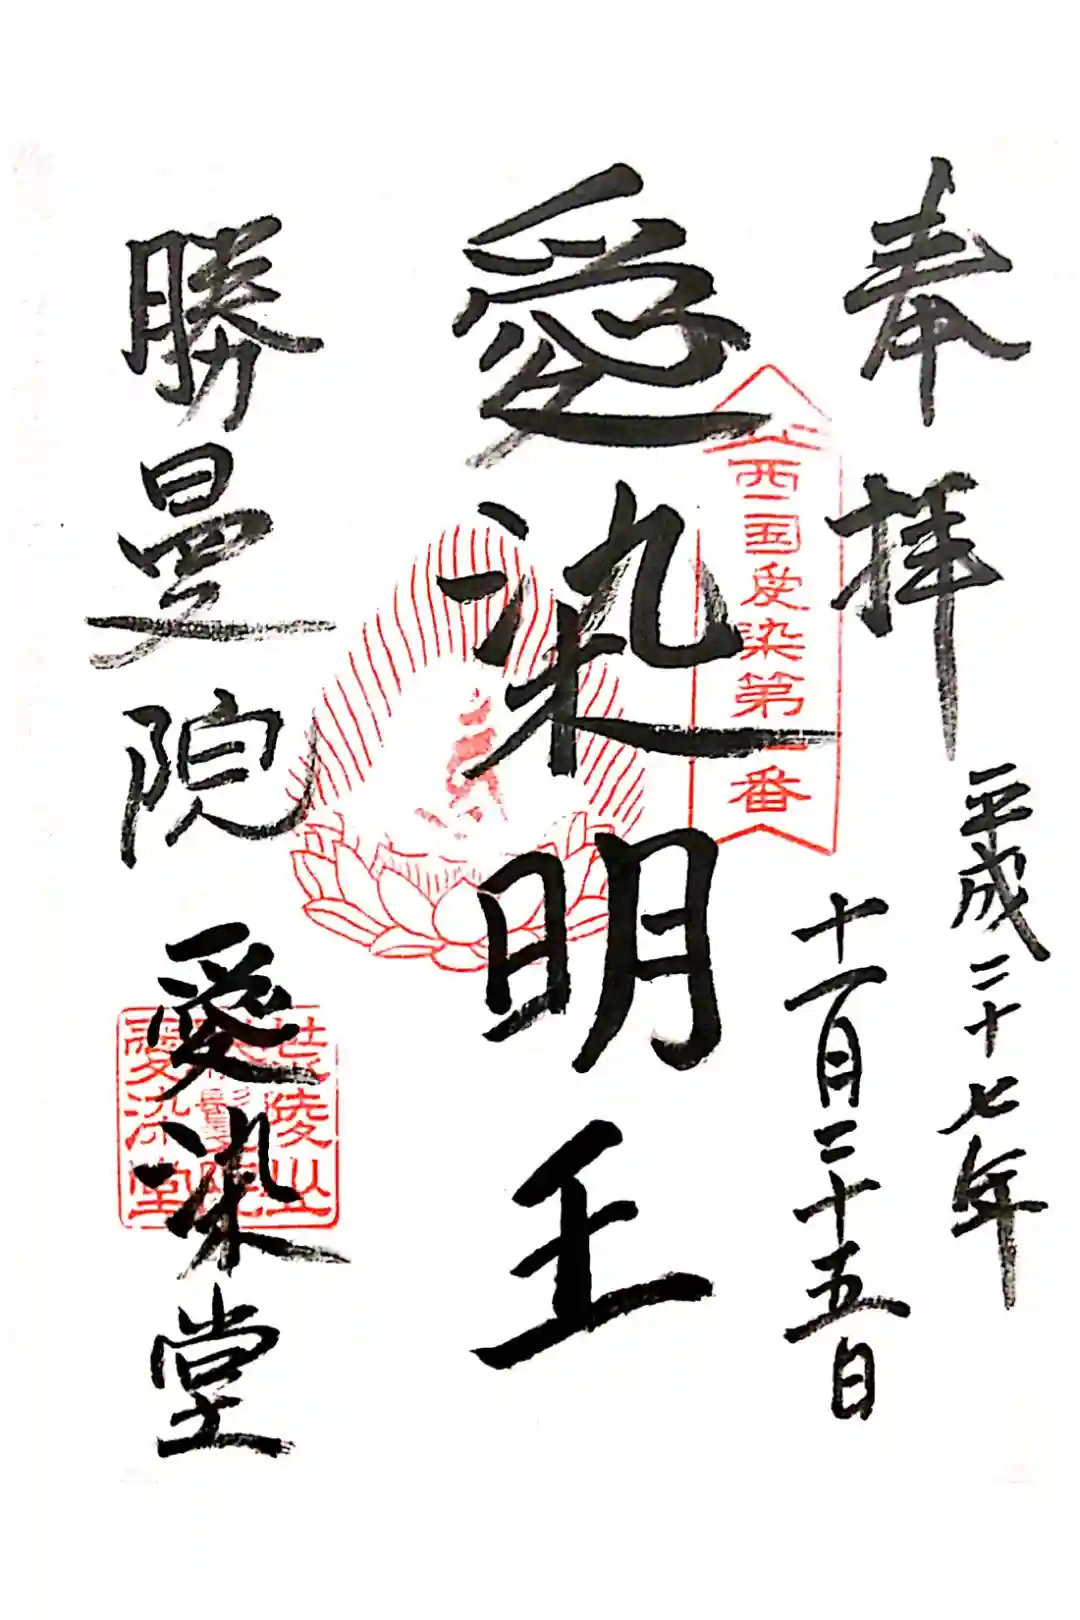 奉拝
平成二十七年
十一月二十五日
西国愛染第一番
愛染明王
勝曼院
愛染堂
荒陵山
勝鬘院
愛染堂